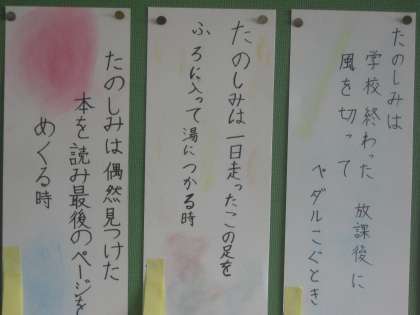 たのしみは
学校終わった 放課後に
風を切って
ペダルこぐとき
たのしみは一日走ったこの足を
ふろに入って湯につかる時
たのしみは偶然見つけた
本を読み最後のページを
めくる時